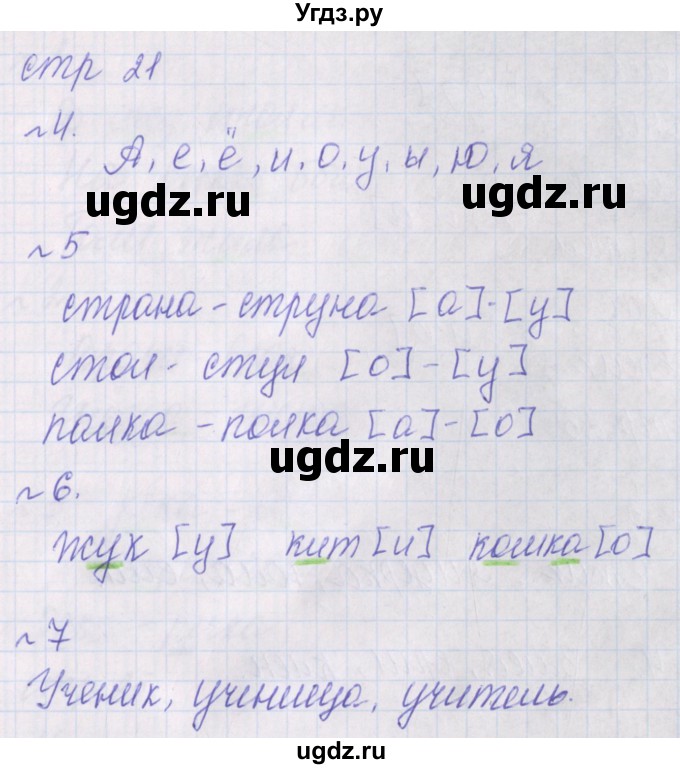 Угдз.ру
стр 21
№4.
А, е, ё, и, о, у, ы, ю, я
ugdz.ru ugdz.ru
№5
страна - струна [а]-[у]
стол - стул [о]-[у]
палка - полка [а]-[о]
ugdz.ru
№6.
жук [у] кит [и] [о]
№7
Ученик, ученица, учитель.
ugdz.ru